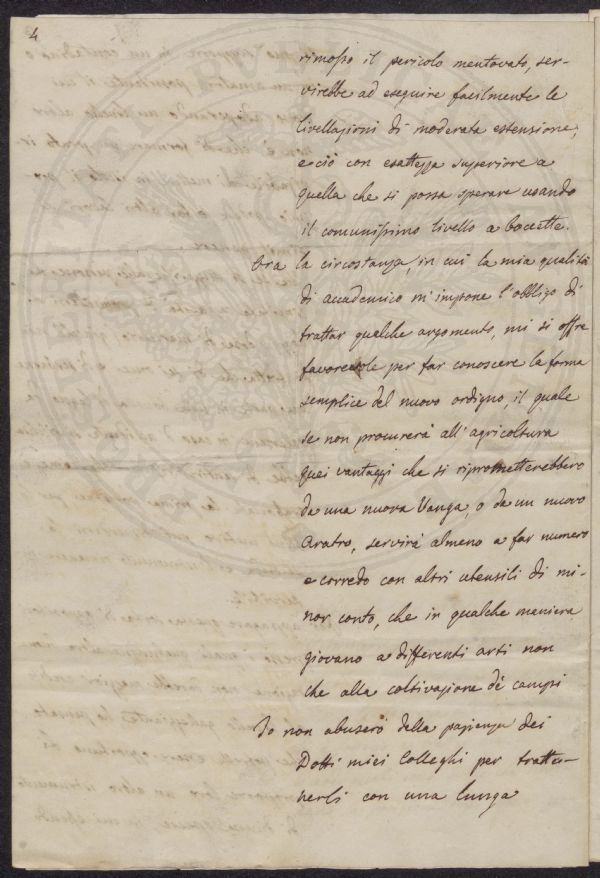 4
rimosso il pericolo mentovato, ser-
virebbe ad eseguire facilmente le
livellazioni di moderata estensione;
e ciò con esattezza superiore a
quella che si possa sperare usando
il comunissimo livello a boccette.
Ora la circostanza, in cui la mia qualità
di accademico m'impone l'obbligo di
trattar qualche argomento, mi si offre
favorevole per far conoscere la forma
semplice del nuovo ordigno, il quale
se non procurerà all'agricoltura
quei vantaggi che si riprometterebbero
da una nuova Vanga, o da un nuovo
aratro, servirà almeno a far numero
e corredo con altri utensili di mi-
nor conto, che in qualche maniera
giovano a differenti arti non
che alla coltivazione de' campi
Io non abuserò della pazienza dei
Dotti miei Colleghi per tratte-
nerli con una lunga